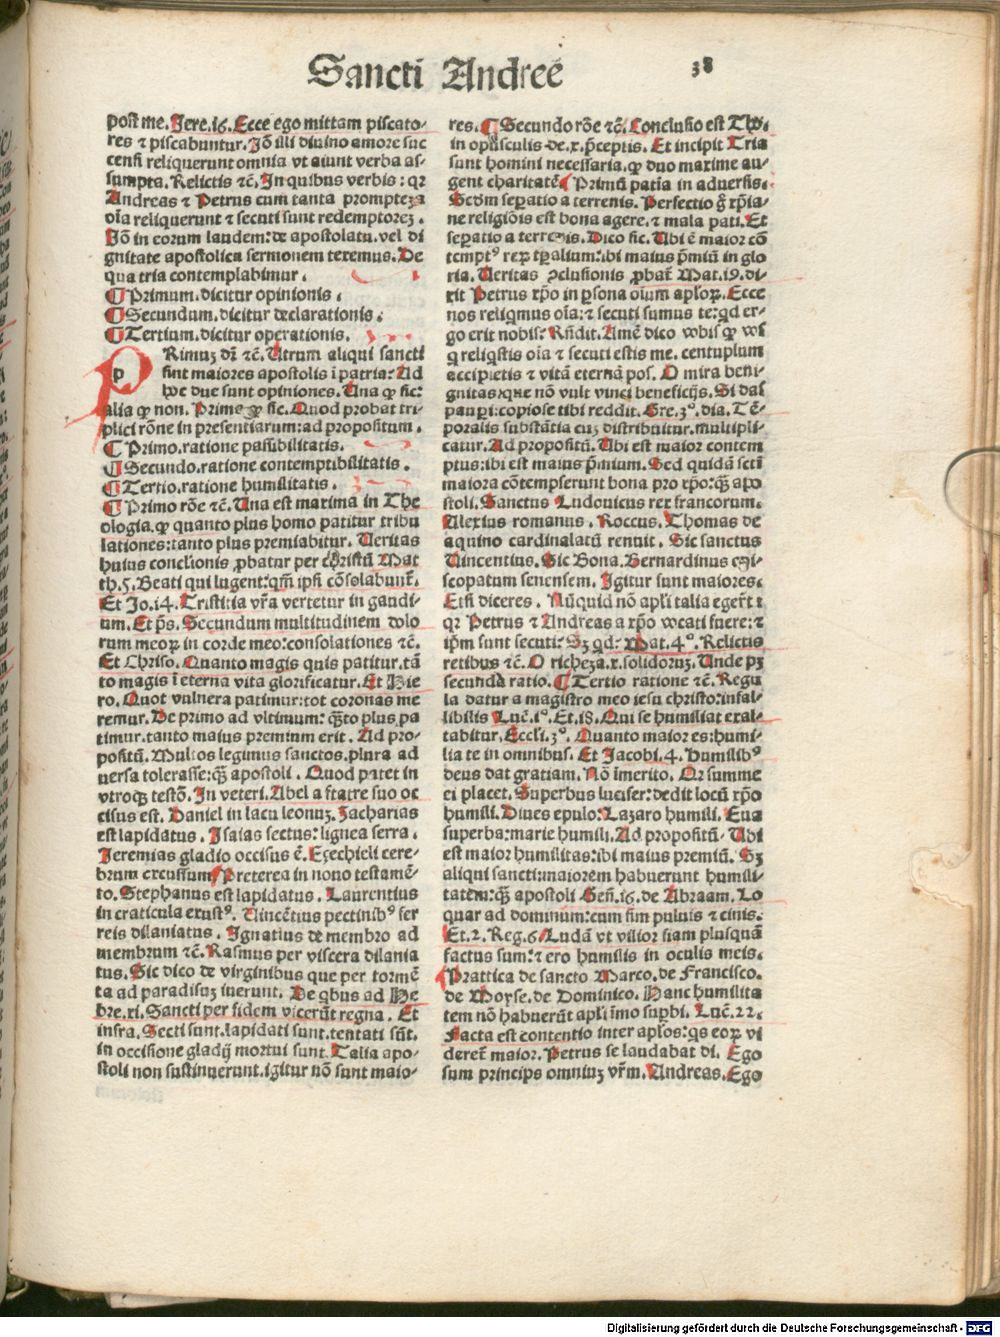 Sancti Andree
38
post me. Jere .16. Ecce ego mittam piscato-
res ⁊ piscabuntur. Jõ illi diuino amore suc
censi reliquerunt omnia vt aiunt verba as-
sumpta. Relictis ⁊c̃. In quibus verbis: qꝛ
Andreas ⁊ Petrus cum tanta promptez a
oĩa reliquerunt ⁊ secuti sunt redemptoreȝ.
Jõ in eorum laudem: de apostolatu. vel di
gnitate apostolica sermonem texemus. De
qua tria contemplabimur.
¶ Primum. dicitur opinionis.
¶ Secundum. dicitur declarationis.
¶ Tertium. dicitur operationis.
PRimuȝ dr̃ ⁊c̃. Utrum aliqui sancti
sint maiores apostolis ĩ patria: Ad
hoc due sunt opiniones. Una ꝙ sic:
alia ꝙ non. Prima ꝙ sic. Quod probat tri-
plici rõne in presentiarum: ad propositum.
¶ Primo. ratione passibilitatis.
¶ Secundo. ratione contemptibilitatis.
¶ Tertio. ratione humilitatis.
¶ Primo rõe ⁊c̃. Una est maxima in The
ologia. ꝙ quanto plus homo patitur tribu
lationes: tanto plus premiabitur. Ueritas
huius conclĩonis ꝓbatur per christũ Mat
th. 5. Beati qui lugent: qm̃ ipsi cõsolabunt̃.
Et Jo. 14. Tristitia vr̃a vertetur in gaudi-
um. Et ps̃. Secundum multitudinem dolo
rum meoꝝ in corde meo: consolationes ⁊c̃.
Et Chriso. Quanto magis quis patitur. tã
to magis ĩ eterna vita glorificatur. Et Hie
ro. Quot vulnera patimur: tot coronas me
remur. De primo ad vltimum: q̃sto plus pa
timur. tanto maius premium erit. Ad pro-
positũ. Multos legimus sanctos. plura ad
uersa tolerasse: q̃ꝫ apostoli. Quod patet in
vtroqꝫ testõ. In veteri. Abel a fratre suo oc
cisus est. Daniel in lacu leonuȝ. Zacharias
est lapidatus. Isaias sectus: lignea serra.
Jeremias gladio occisus ẽ. Ezechieli cere-
brum excussum Preterea in nouo testamẽ-
to. Stephanus est lapidatus. Laurentius
in craticula exustꝰ. Uincẽtius pectinibꝰ fer
reis dilaniatus. Ignatius de membro ad
membrum ⁊c̃. Rasmus per viscera dilania
tus. Sic dico de virginibus que per tormẽ
ta ad paradisuȝ iuerunt. De q̃bus ad He
bre. xi. Sancti per fidem vicerũt regna. Et
infra. Secti sunt. lapidati sunt. tentati sũt.
in occisione gladij mortui sunt. Talia apo-
stoli non sustinuerunt. igitur nõ sunt maio-
res. ¶ Secundo rõe ⁊c̃. Conclusio est Tho.
in opusculis de .x. p̃ceptis. Et incipit Tria
sunt homini necessaria. ꝙ duo maxime au-
gent charitatẽ Primũ patĩa in aduersis.
Scd̃m sepatio a terrenis. Perfectio g̃ xp̃ia-
ne religiõis est bona agere. ⁊ mala pati. Et
sepatio a terrenis. Dico sic. Ubi ẽ maior cõ
temptꝰ reꝝ tꝑalium: ibi maius p̃miũ in glo
ria. Ueritas ꝯclusionis ꝓbat̃ Mat. 19. di-
xit Petrus xp̃o in ꝑsona oĩum apl̃oꝝ. Ecce
nos reliqimus oĩa: ⁊ secuti sumus te: qd er-
go erit nobis: Rñdit. Amẽ dico vobis ꝙ vos
q reliqistis oĩa ⁊ secuti estis me. centuplum
accipietis ⁊ vitã eternã pos. O mira beni-
gnitas que nõ vult vinci beneficijs. Si das
pauꝑi: copiose tibi reddit. Gre. 3º. dia. Tẽ-
poralis substãtia cuȝ distribuitur. multipli-
catur. Ad propositũ. Ubi est maior contem
ptus: ibi est maius p̃mium. Sed quidã scti
maiora cõtempserunt bona pro xp̃o: q̃ꝫ apo
stoli. Sanctus Ludouicus rex francorum.
Alexius romanus. Roccus. Thomas de
aquino cardinalatũ renuit. Sic sanctus
Uincentius. Sic Bona. Bernardinus epi-
scopatum senensem. Igitur sunt maiores.
Etsi diceres. Nũquid nõ apl̃i talia egerũt:
qꝛ Petrus ⁊ Andreas a xp̃o vocati fuere: ⁊
ip̃m sunt secuti: Sȝ qd: Mat. 4º. Relictis
retibus ⁊c̃. O richeza. x. solidoruȝ. Unde pȝ
secunda ratio. ¶ Tertio ratione ⁊c̃. Regu
la datur a magistro meo iesu christo: infal-
libilis Luc̃. 1º. Et. 18. Qui se humiliat exal-
tabitur. Eccli. 3º. Quanto maior es: humi-
lia te in omnibus. Et Jacobi. 4. Humilibꝰ
deus dat gratiam. Nõ ĩmerito. Qꝛ summe
ei placet. Superbus lucifer: dedit locũ xp̃o
humili. Diues epulo: Lazaro humili. Eua
superba: marie humili. Ad propositũ. Ubi
est maior humilitas: ibi maius premiũ. Sȝ
aliqui sancti: maiorem habuerunt humili-
tatem: q̃ꝫ apostoli Gen̄. 16. de Abraam. Lo
quar ad dominum: cum sim puluis ⁊ cinis.
Et. 2. Reg. 6. Ludã vt vilior fiam plusquã
factus sum: ⁊ ero humilis in oculis meis.
Prattica de sancto Marco. de Francisco.
de Moyse. de Dominico. Hanc humilita
tem nõ habuerũt apl̃i ĩmo suꝑbi. Luc̃. 22.
Facta est contentio inter apl̃os: q̃s eoꝝ vi
deret̃ maior. Petrus se laudabat dĩ. Ego
sum princeps omniuȝ vr̃m. Andreas. Ego
Digitalisierung gefördert durch die Deutsche Forschungsgemeinschaft - DFG